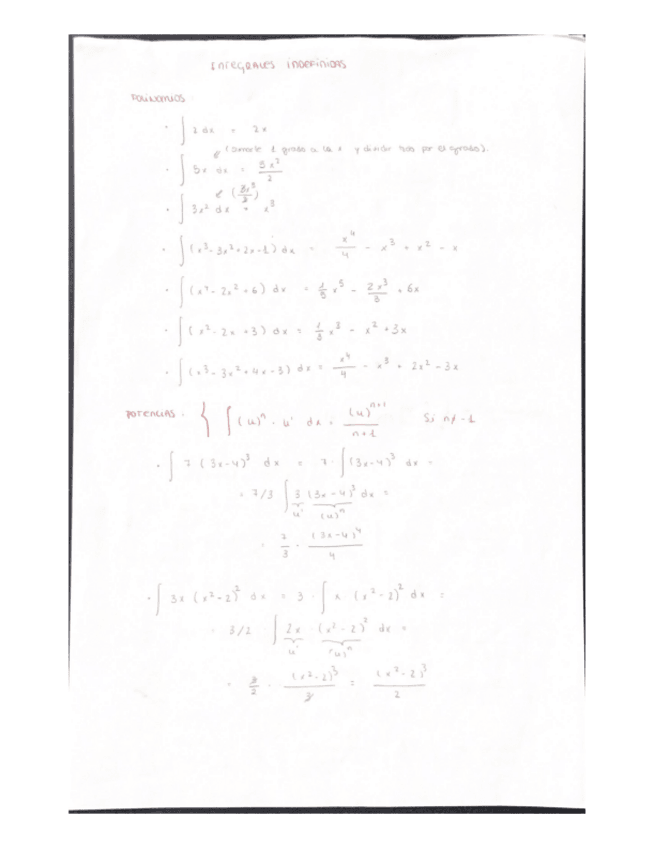 INTEGRALES INDEFINIDAS
POLINOMIOS
· ∫ 2 dx = 2x
(Sumarle 1 grado a la x y dividir todo por el grado).
· ∫ 5x dx = 5x²/2
(3x³/3)
· ∫ 3x² dx = x³
· ∫ (x³ - 3x² + 2x - 1) dx = x⁴/4 - x³ + x² - x
· ∫ (x⁴ - 2x² + 6) dx = 1/5 x⁵ - 2x³/3 + 6x
· ∫ (x² - 2x + 3) dx = 1/3 x³ - x² + 3x
· ∫ (x³ - 3x² + 4x - 3) dx = x⁴/4 - x³ + 2x² - 3x
POTENCIAS: { ∫ (u)ⁿ · u' dx = (u)ⁿ⁺¹/n+1 Si n≠-1
· ∫ 7 (3x-4)³ dx = 7 · ∫ (3x-4)³ dx =
= 7/3 ∫ 3 (3x-4)³ dx =
u' (u)ⁿ
= 7/3 · (3x-4)⁴/4
· ∫ 3x (x²-2)² dx = 3 · ∫ x (x²-2)² dx =
= 3/2 ∫ 2x (x²-2)² dx =
u' (u)ⁿ
= 3/2 · (x²-2)³/3 = (x²-2)³/2